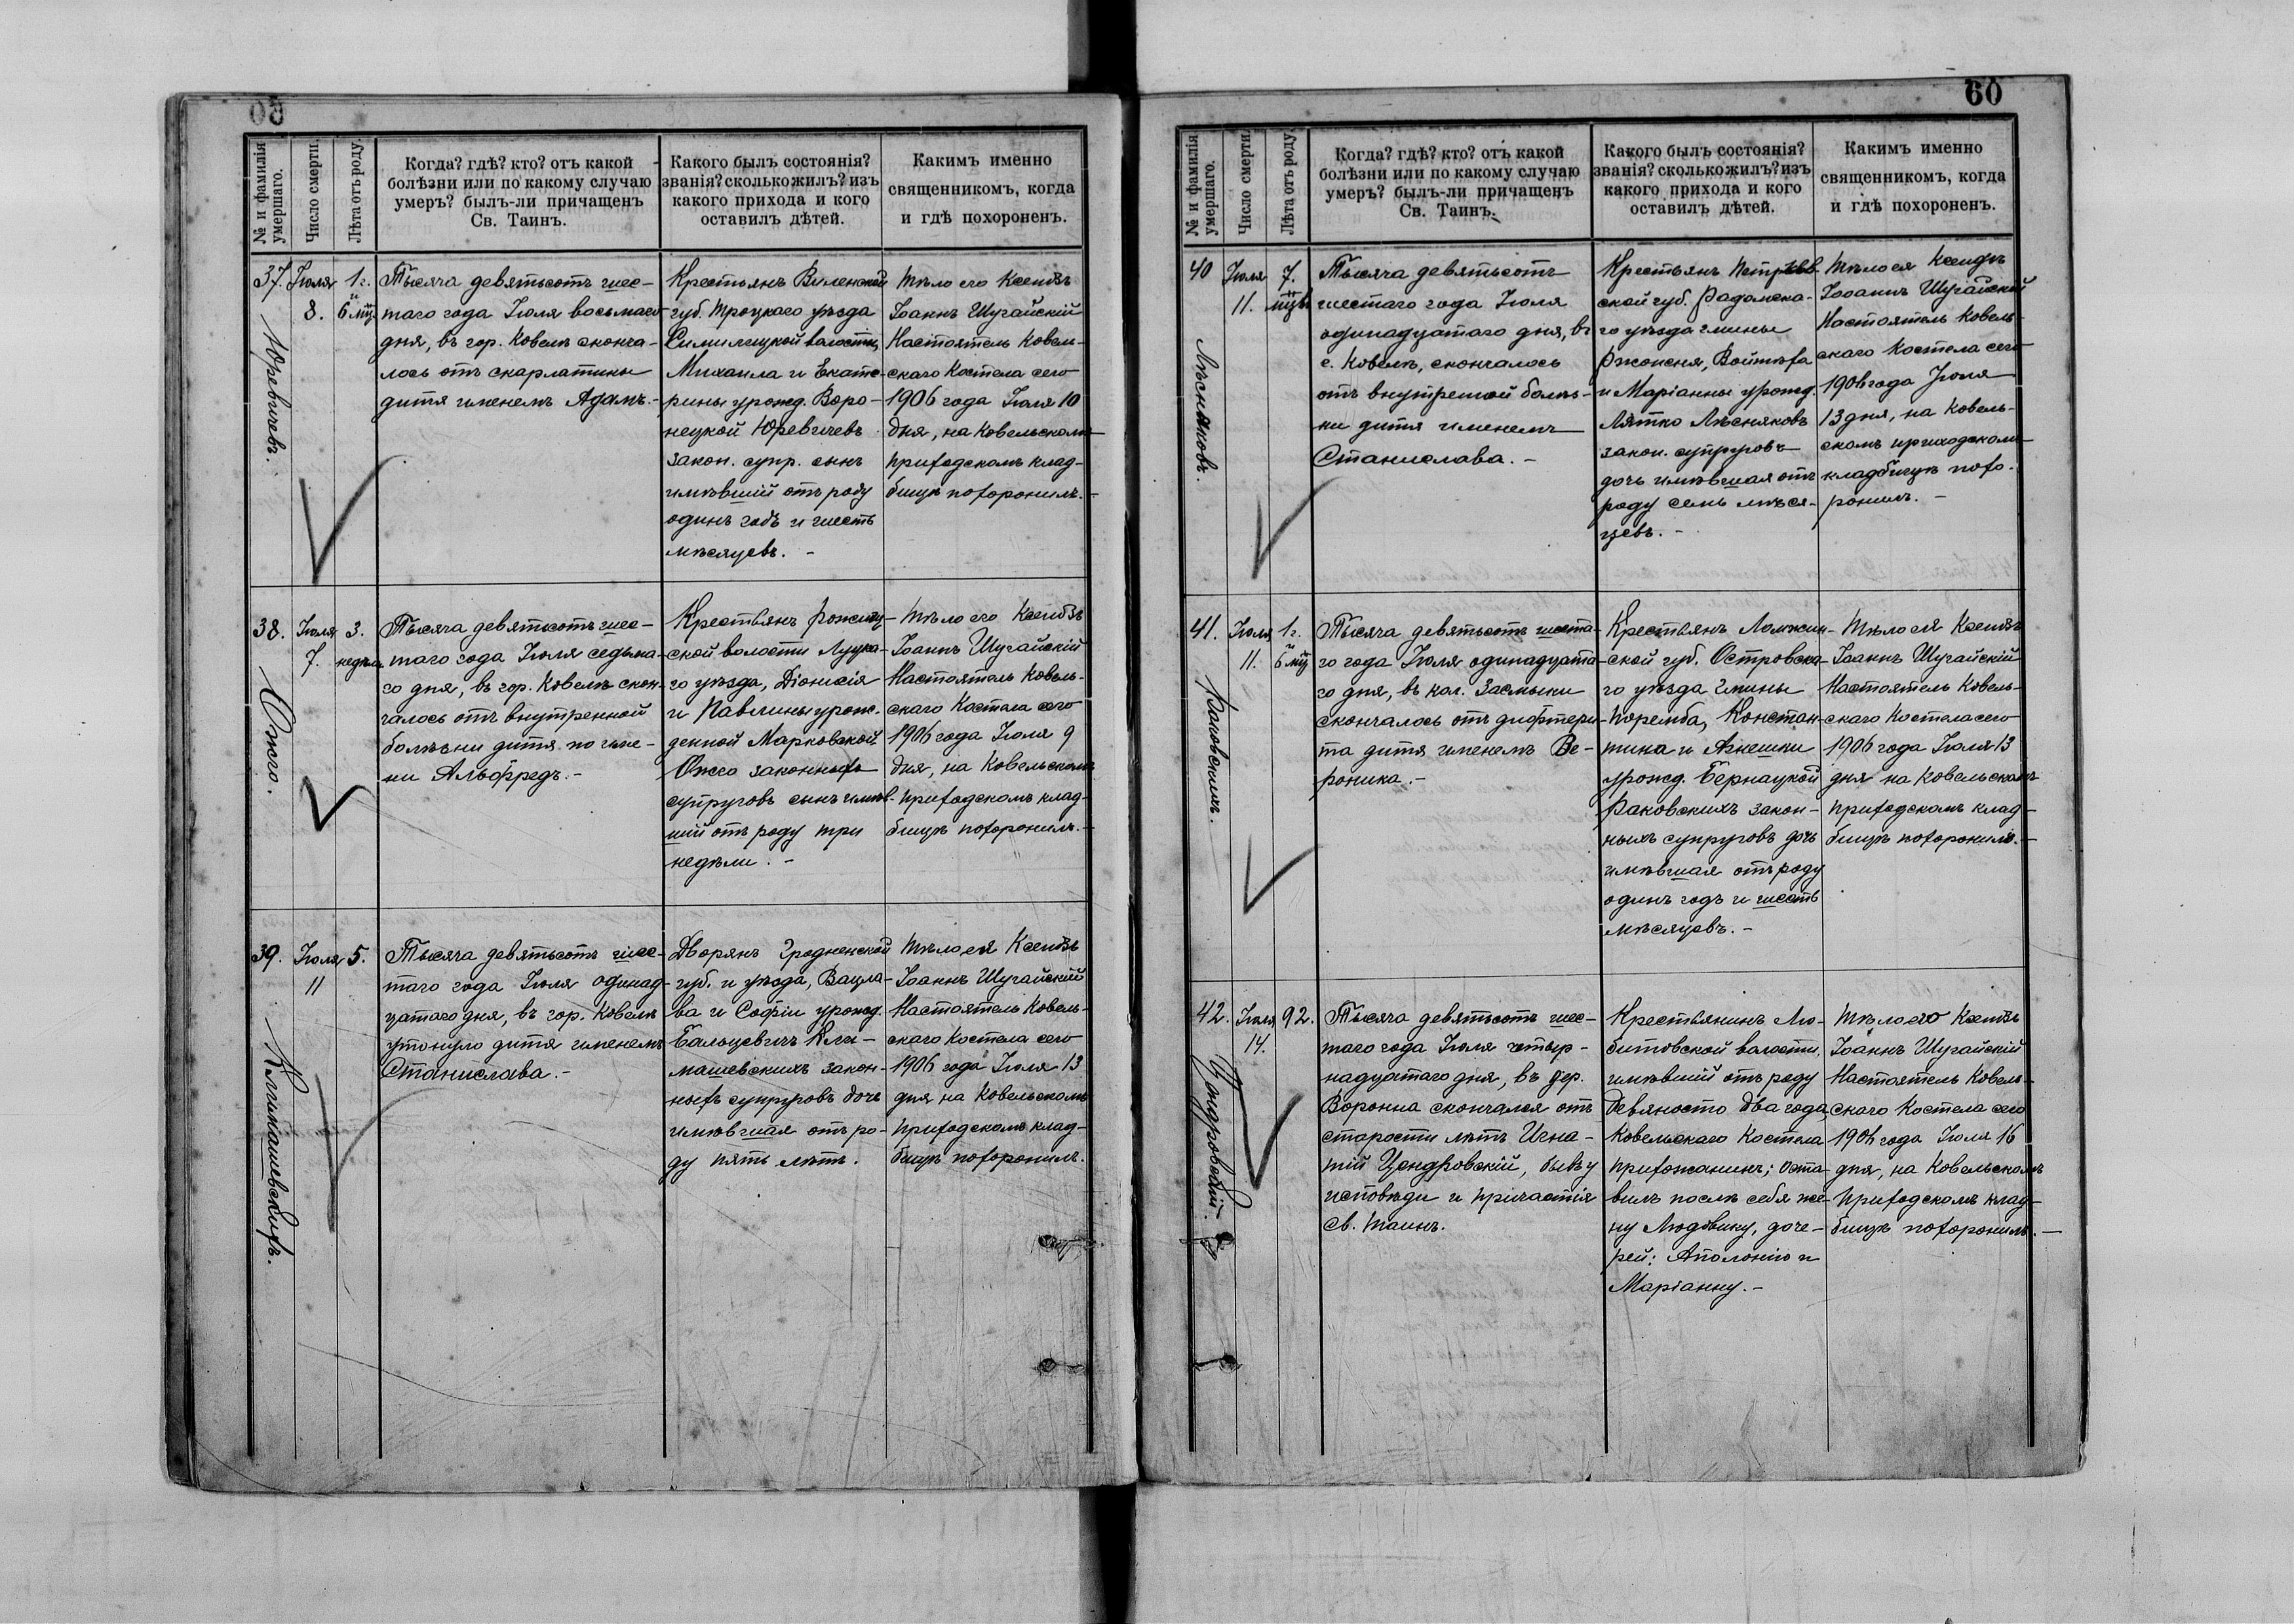 60
№ и фамилія умершаго.
Число смерти.
Лѣта отъ роду.
Когда? гдѣ? кто? отъ какой
болѣзни или по какому случаю
умеръ? былъ-ли причащенъ
Св. Таинъ.
Какого былъ состоянія?
званія? сколько жилъ? изъ
какого прихода и кого
оставилъ дѣтей.
Какимъ именно
священникомъ, когда
и гдѣ похороненъ.
37.
Юревичевъ.
Іюля
8.
1 г.
и
6 мц.
Тысяча девятьсотъ шес-
таго года Іюля восьмаго
дня, въ гор. Ковелѣ сконча-
лось отъ скарлатины
дитя именемъ Адамъ.-
Крестьянъ Виленской
губ. Троцкаго уѣзда
волости,
Михаила и Екате-
рины урожд. Воро-
нецкой Юревичевъ
закон. супр. сынъ
имѣвшій отъ роду
одинъ годъ и шесть
мѣсяцевъ. -
Тѣло его Ксендзъ
Іоаннъ Шугайскій
Настоятель Ковель-
скаго Костела сего
1906 года Іюля 10
дня, на Ковельскомъ
приходскомъ клад-
бищѣ похоронилъ.-
38.
Ожго.
Іюля
7.
3.
недѣли
Тысяча девятьсотъ шес-
таго года Іюля седьма-
го дня, въ гор. Ковелѣ скон-
чалось отъ внутренной
болѣзни дитя по име-
ни Альфредъ.-
Крестьянъ Рожищ-
ской волости Луцка-
го уѣзда, Діонисія
и Павлины урож-
денной Марковской
Ожго законныхъ
супруговъ сынъ имѣв-
шій отъ роду три
недѣли. -
Тѣло его Ксендзъ
Іоаннъ Шугайскій
Настоятель Ковель-
скаго Костела сего
1906 года Іюля 9
дня, на Ковельскомъ
приходскомъ клад-
бищѣ похоронилъ.-
39.
Климашевскихъ.
Іюля
11
5.
Тысяча девятьсотъ шес-
таго года Іюля одинад-
цатаго дня, въ гор. Ковелѣ
утонуло дитя именемъ
Станислава.-
Дворянъ Гродненской
губ. и уѣзда, Вацла-
ва и Софіи урожд.
Бальцевичъ Кли-
машевскихъ закон-
ныхъ супруговъ дочь
имѣвшая отъ ро-
ду пять лѣтъ.
Тѣло ея Ксендзъ
Іоаннъ Шугайскій
Настоятель Ковель-
скаго Костела сего
1906 года Іюля 13
дня на Ковельскомъ
приходскомъ клад-
бищѣ похоронилъ.
60
№ и фамилія умершаго.
Число смерти.
Лѣта отъ роду.
Когда? гдѣ? кто? отъ какой
болѣзни или по какому случаю
умеръ? былъ-ли причащенъ
Св. Таинъ.
Какого былъ состоянія?
званія? сколько жилъ? изъ
какого прихода и кого
оставилъ дѣтей.
Какимъ именно
священникомъ, когда
и гдѣ похороненъ.
40
Лѣсняковъ.
Іюля
11.
7.
мцвъ
Тысяча девятьсотъ
шестаго года Іюля
одинадцатаго дня, въ
г. Ковелѣ, скончалось
отъ внутренной болѣз-
ни дитя именемъ
Станислава.-
Крестьянъ
ской губ. Радомска-
го уѣзда гмины
Войтѣха
и Маріанны урожд.
Лятко Лѣсняковъ
закон. супруговъ
дочь имѣвшая отъ
роду семь мѣся-
цевъ.-
Тѣло ея Ксендзъ
Іоаннъ Шугайскій
Настоятель Ковель-
скаго Костела сего
1906 года Іюля
13 дня, на Ковель-
скомъ приходскомъ
кладбищѣ похо-
ронилъ.-
41.
Раковскихъ.
Іюля
11.
1 г.
и
6 мц
Тысяча девятьсотъ шеста-
го года Іюля одинадцата-
го дня, въ кол. Засмыки
скончалось отъ дифтери-
та дитя именемъ Ве-
роника.-
Крестьянъ Ломжин-
ской губ. Островска-
го уѣзда гмины
Поремба, Констан-
тина и Агнешки
урожд. Бернацкой
Раковскихъ закон-
ныхъ супруговъ дочь
имѣвшая отъ роду
одинъ годъ и шесть
мѣсяцевъ.-
Тѣло ея Ксендзъ
Іоаннъ Шугайскій
Настоятель Ковель-
скаго Костела сего
1906 года Іюля 13
дня на Ковельскомъ
приходскомъ клад-
бищѣ похоронилъ.-
42.
Цендровскій.-
Іюля
14.
92.
Тысяча девятьсотъ шес-
таго года Іюля четыр-
надцатаго дня, въ дер.
Воронна скончался отъ
старости лѣтъ Игна-
тій Цендровскій, бывъ у
исповѣди и причастія
Св. Таинъ.
Крестьянинъ Лю-
битовской волости,
имѣвшій отъ роду
девяносто два года,
Ковельскаго Костела
прихожанинъ; оста-
вилъ послѣ себя же-
ну Людвику, доче-
рей: Аполонію и
Маріанну.-
Тѣло его Ксендзъ
Іоаннъ Шугайскій
Настоятель Ковель-
скаго Костела сего
1906 года Іюля 16
дня, на Ковельскомъ
приходскомъ клад-
бищѣ похоронилъ.-